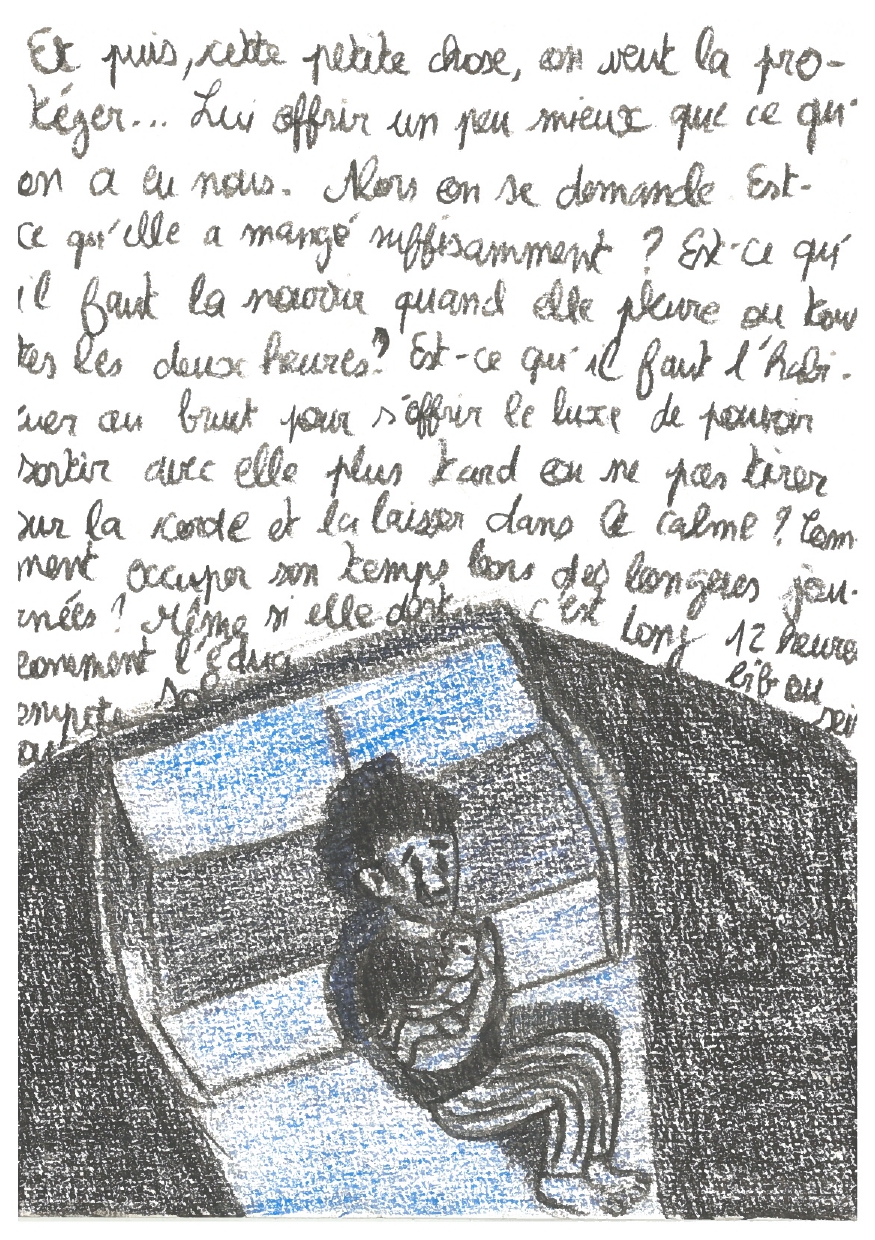 Et puis, cette petite chose, on veut la pro-
téger... Lui offrir un peu mieux que ce qu'
on a eu nous. Alors on se demande Est-
ce qu'elle a mangé suffisamment ? Est-ce qu'
il faut la nourrir quand elle pleure ou tou
tes les deux heures? Est-ce qu'il faut l'habi-
tuer au bruit pour s'offrir le luxe de pouvoir
sortir avec elle plus tard ou ne pas tirer
sur la corde et la laisser dans le calme ? Com
ment occuper son temps lors des longues jou-
rnées ? Même si elle dort c'est long 12 heures
comment l'éduq
bib ou
sein